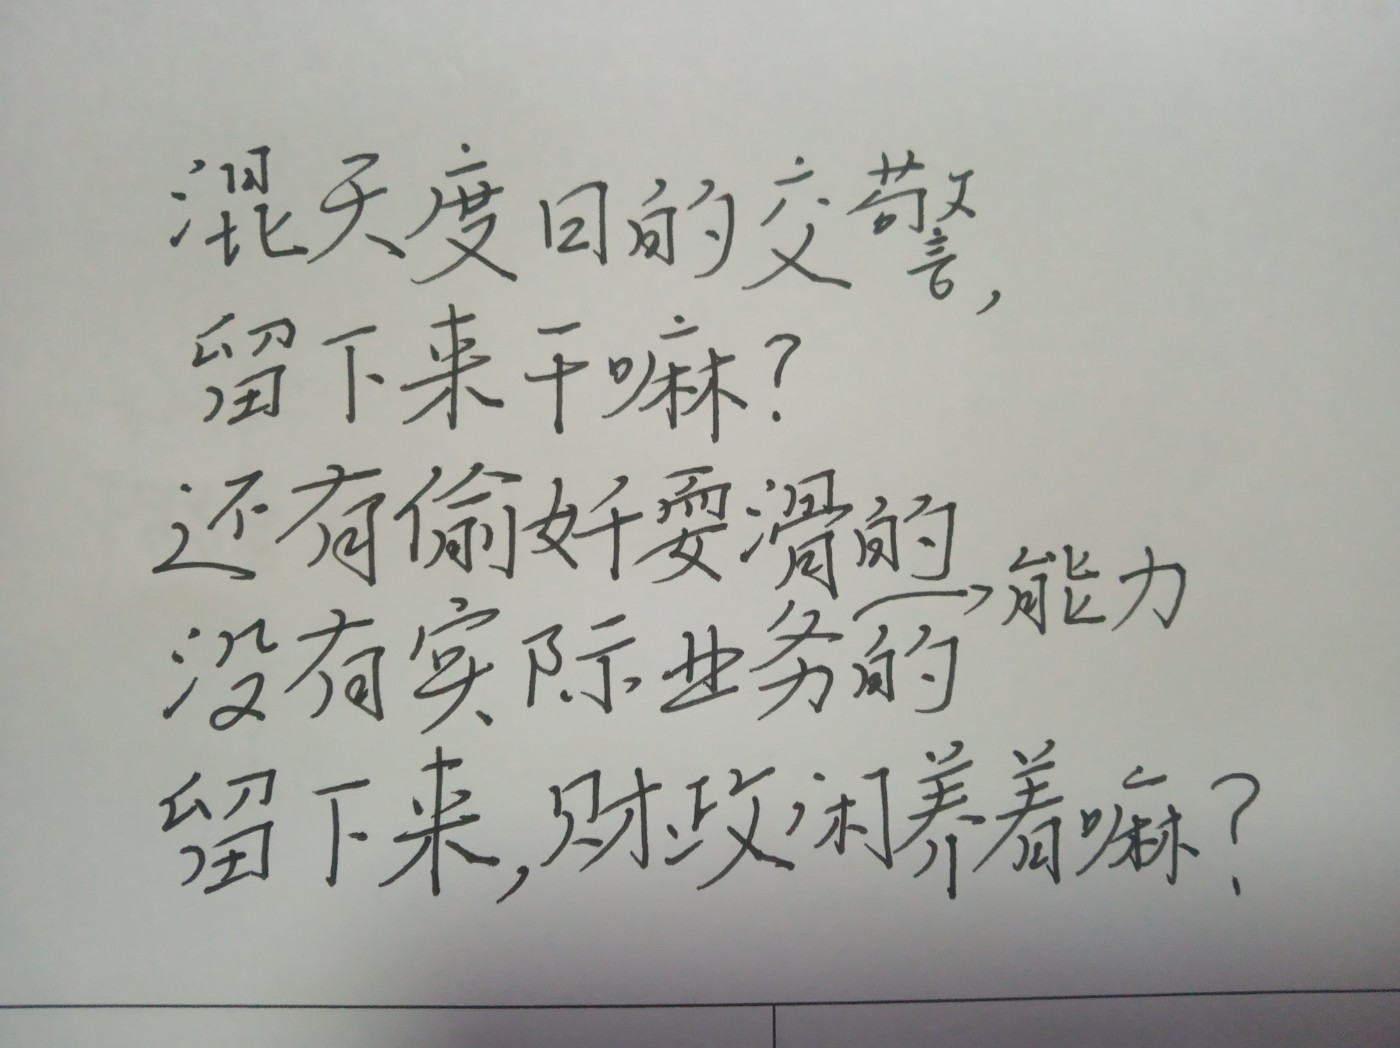 混天度日的交警,
留下来干嘛?
还有偷奸耍滑的
没有实际业务的
能力
留下来,财政闲养着嘛?